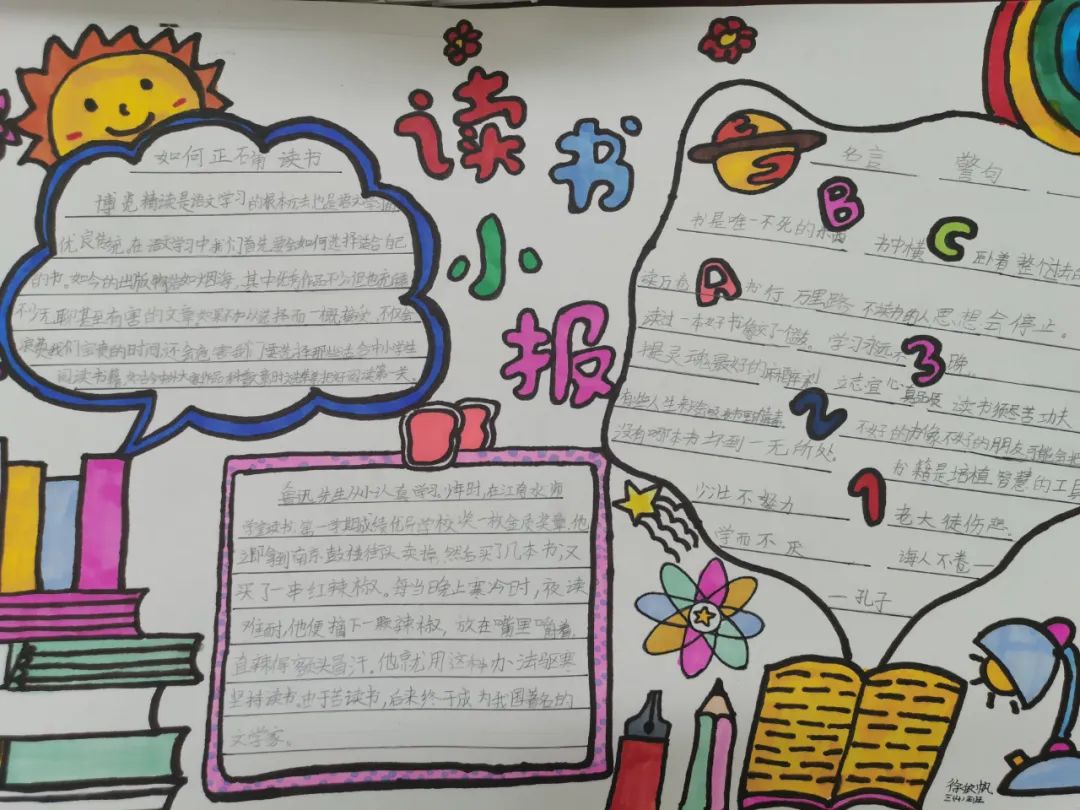 读书
小
报
如何正确读书
博览精读是语文学习的根本方法也是语文学习
优良传统,在语文学习中我们首先要会如何选择适合自己
的书。如今的出版物浩如烟海,其中优秀作品不少但也充斥
不少无聊甚至有害的文章如果不加以选择而一概接读,不仅会
浪费我们宝贵的时间,还会危害我们要选择那些适合中小学生
阅读书籍
鲁迅先生从小认真学习。少年时,在江南水师
学堂读书,第一学期成绩优异学校奖一枚金质奖章,他
立即拿到南京鼓楼街头卖掉,然后买了几本书,又
买了一串红辣椒。每当晚上寒冷时,夜读
难耐,他便摘下一颗辣椒,放在嘴里嚼着,
直辣得额头冒汗。他就用这种办法驱寒
坚持读书。由于苦读书,后来终于成为我国著名的
文学家。
名言 警句
书是唯一不死的东西 书中横 卧着整个过去的
读万卷 书行万里路 不读书的人思想会停止。
读过一本好书 学习永远不 晚
提灵魂最好的麻醉剂 立志宜 读书须尽苦功夫
不好的书像不好的朋友可能会把
没有哪本书坏到一无所处. 书籍是培植智慧的工具
少壮不努力 老大徒伤悲.
学而不厌 诲人不倦一
一孔子
B
C
A
3
2
1